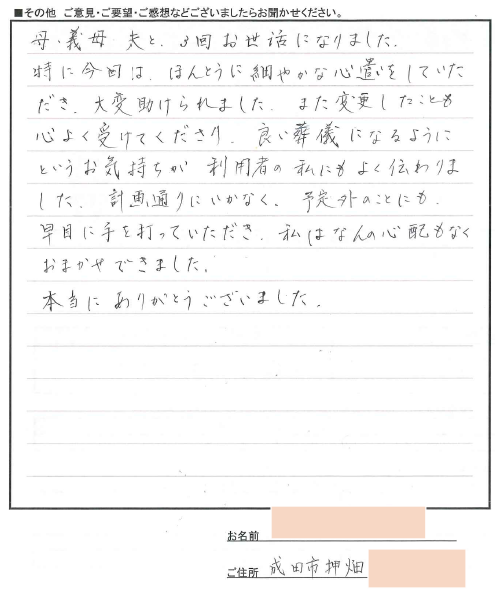 ■その他 ご意見・ご要望・ご感想などございましたらお聞かせください。
母・義母 夫と、3回お世話になりました。
特に今回は、ほんとうに細やかな心遣をしていた
だき、大変助けられました。また変更したことも
心よく受けてくださり、良い葬儀になるように
というお気持ちが 利用者の私にもよく伝わりま
した。計画通りにいかなく、予定外のことにも、
早目に手を打っていただき、私はなんの心配もなく
おまかせできました。
本当にありがとうございました。
お名前
ご住所 成田市押畑